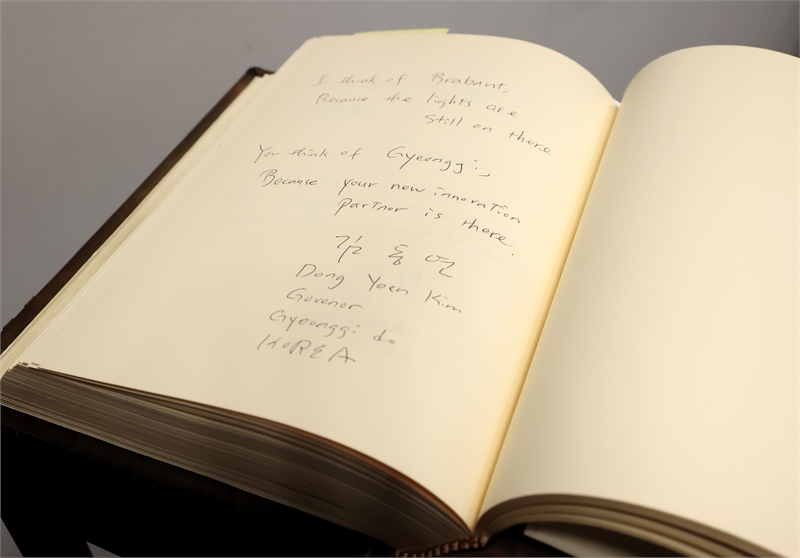 I think of Brabant,
Because the lights are
Still on there.
You think of Gyeonggi,
Because your new innovation
partner is there.
김동연
Dong Yeon Kim
Govenor
Gyeonggi do
KOREA